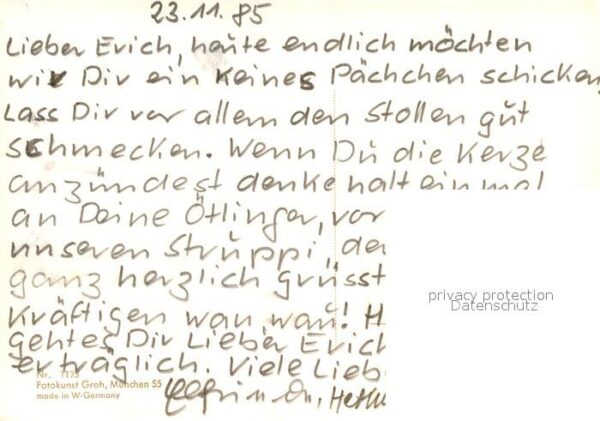 23.11.85
Lieber Erich, heute endlich möchten
wir Dir ein keines Pächchen schicken,
Lass Dir vor allem den Stollen gut
schmecken. Wenn Du die Kerze
anzündest denke halt einmal
an Deine Ötlinger, vor
unseren Struppi, der
ganz herzlich grüsst
kräftigen wau, wau! H
gehtes Dir Lieber Erich
erträglich. Viele Lieb
privacy protection
Datenschutz
Nr. 1125
Fotokunst Groh, München 55
made in W-Germany